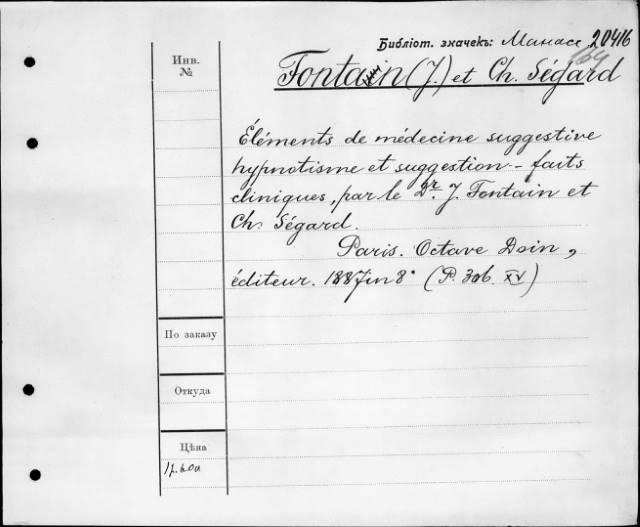 Библіот. значекъ: Манасе 20416
Инв.
№
Fontain (J.) et Ch. Ségard
Éléments de médecine suggestive
hypnotisme et suggestion - faits
cliniques, par le Dr. J. Fontain et
Ch. Ségard.
Paris. Octave Doin,
éditeur. 1887 in 8° (P. 306. XV)
По заказу
Откуда
Цѣна
1р.60к